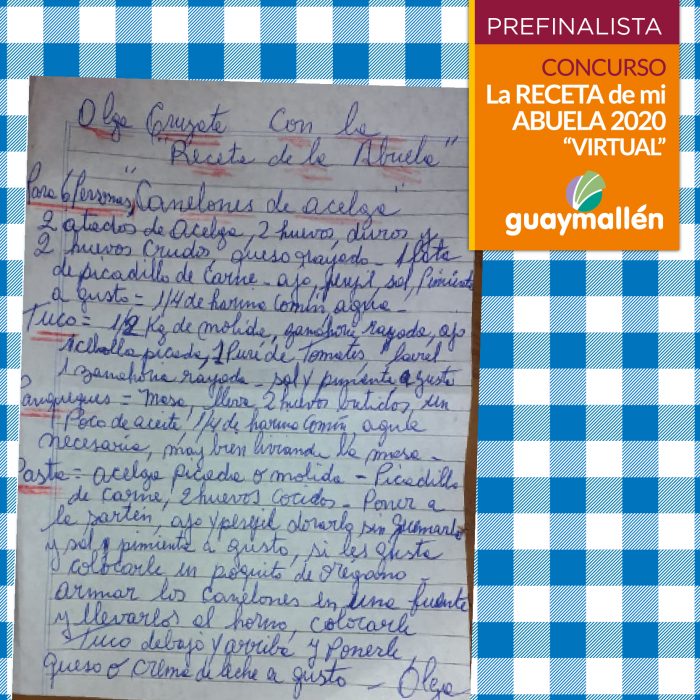 PREFINALISTA
CONCURSO
La RECETA de mi
ABUELA 2020
“VIRTUAL”
guaymallén
Olga Cruzate Con la
"Receta de la Abuela"
Para 6 Personas, "Canelones de acelga"
2 atados de acelga, 2 huevos, duros y
2 huevos crudos, queso rayado - 1 lata
de picadillo de carne - ajo, perejil, sal, Pimienta
a gusto = 1/4 de harina común agua -
Tuco = 1/2 Kg de molida, zanahoria rayada, ajo
1 cebolla picada, 1 Puré de Tomates, laurel
1 zanahoria rayada - sal y pimienta a gusto
Panqueques = Masa, lleva 2 huevos batidos, un
Poco de aceite, 1/4 de harina común, agua
necesaria, muy bien liviando la masa -
Pasta = acelga picada o molida - Picadillo
de carne, 2 huevos cocidos - Poner a
la sartén, ajo y perejil dorarlo sin quemarlo
y sal y pimienta a gusto, si les gusta
colocarle un poquito de orégano -
armar los canelones en una fuente
y llevarlos al horno, colocarle
Tuco debajo y arriba y Ponerle
queso o crema de leche a gusto - Olga